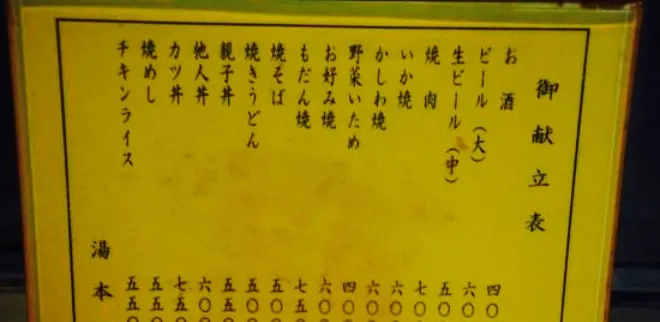 御献立表
お酒 四〇
ビール（大） 六〇
生ビール（中） 五〇
焼肉 七〇
いか焼 六〇
かしわ焼 六〇
野菜いため 四〇
お好み焼 六〇
もだん焼 七五
焼そば 五〇
焼きうどん 五〇
親子丼 五五
他人丼 六〇
カツ丼 七五
焼めし 五五
チキンライス 五五
湯本